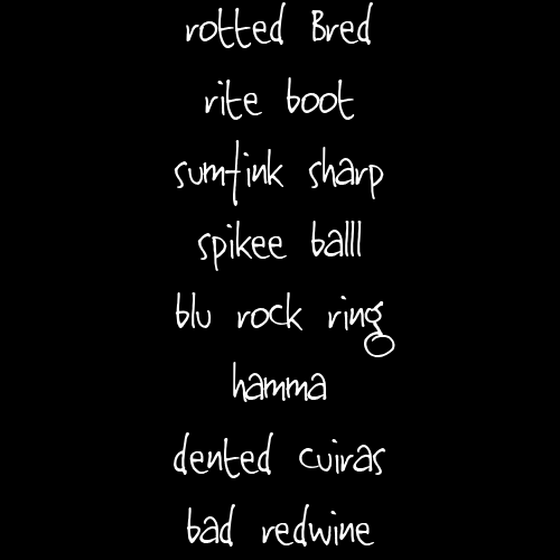 rotted Bred
rite boot
sumtink sharp
spikee balll
blu rock ring
hamma
dented cuiras
bad redwine